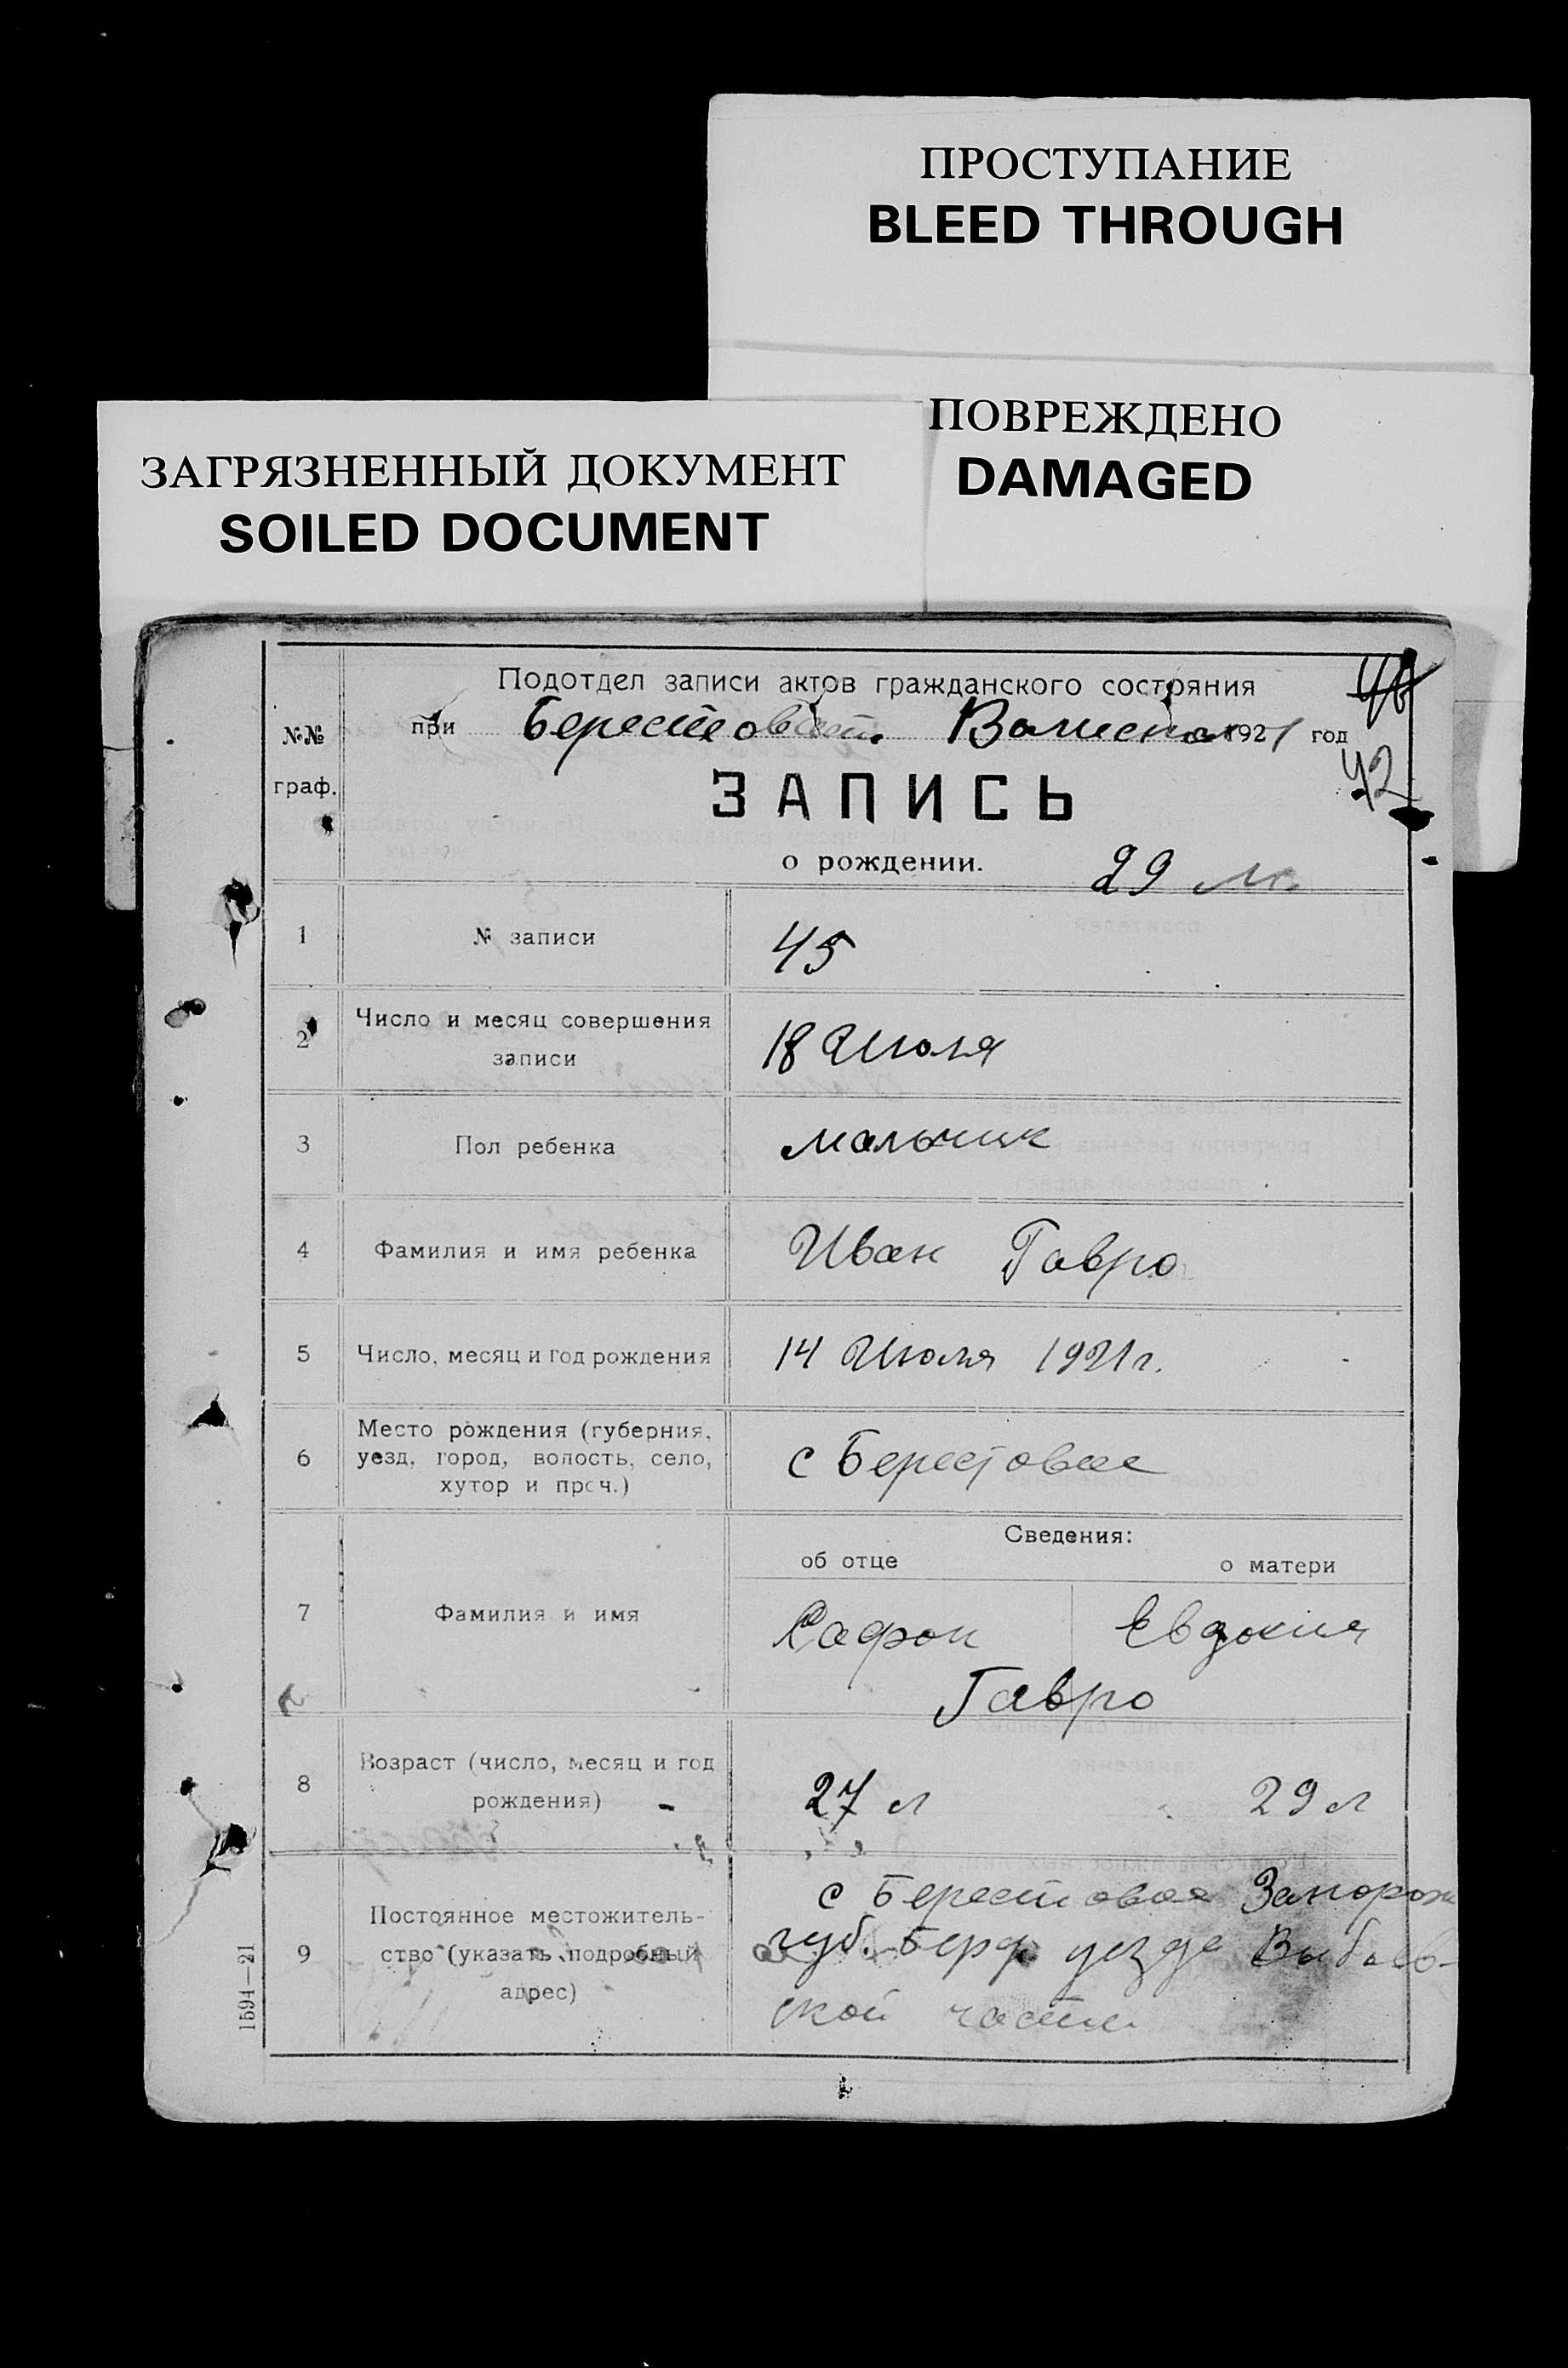 ПРОСТУПАНИЕ
BLEED THROUGH
ПОВРЕЖДЕНО
DAMAGED
ЗАГРЯЗНЕННЫЙ ДОКУМЕНТ
SOILED DOCUMENT
Подотдел записи актов гражданского состояния
при 1921 год
42
№№
граф.
ЗАПИСЬ
о рождении.
29
1 № записи 45
2 Число и месяц совершения
записи
18 Июля
3 Пол ребенка мальчик
4 Фамилия и имя ребенка Иван Гавро
5 Число, месяц и год рождения 14 Июля 1921 г.
6 Место рождения (губерния,
уезд, город, волость, село,
хутор и проч.)
с Берестовое
Сведения:
об отце о матери
7 Фамилия и имя Сафрон Евдокия
Гавро
8 Возраст (число, месяц и год
рождения)
27 л 29 л
9 Постоянное местожитель-
ство (указать подробный
адрес)
с Берестовое Запорож
губ. Берд уезда
ской части
1594—21